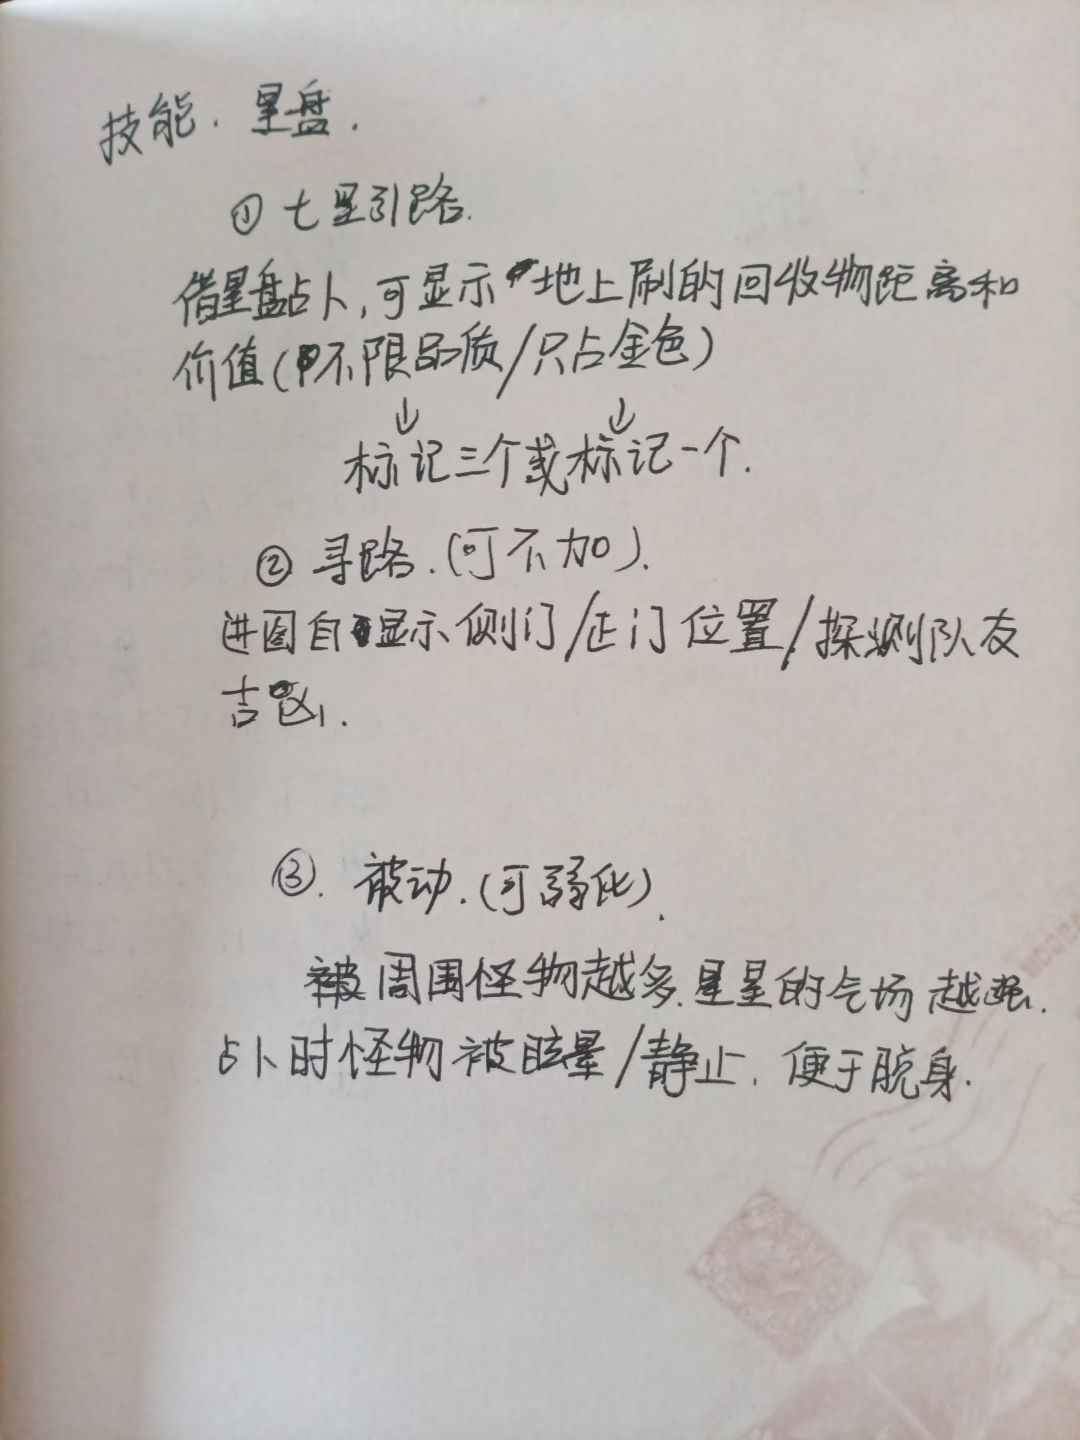 技能. 星盘.
① 七星引路.
借星盘占卜,可显示地上刷的回收物距离和
价值(不限品质/只占金色)
↓ ↓
标记三个或标记一个.
② 寻路.(可不加).
进图自显示侧门/正门位置/探测队友
吉凶.
③. 被动.(可弱化).
被周围怪物越多.星星的气场越强.
占卜时怪物被眩晕/静止.便于脱身.